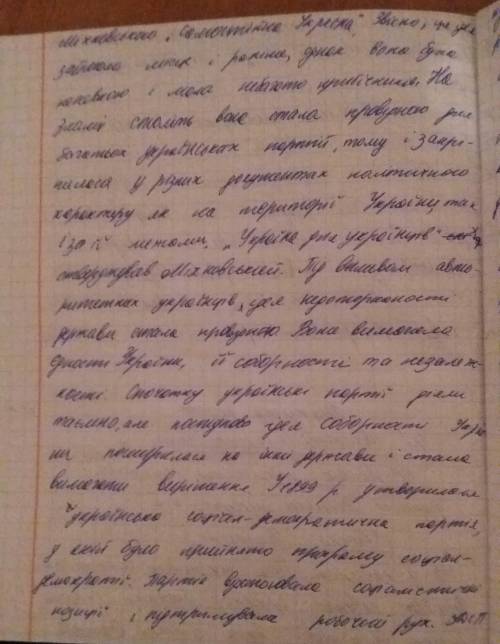 Міхновського „Самостійна Україна". Звісно, ця ідея
займала місце і раніше, однак вона була
новою і мала небагато прибічників. На
зламі століть вона стала провідною для
багатьох українських партій, тому і закрі-
пилася у різних документах політичного
характеру як на території України, так
і за її межами. „Україна для українців" -
стверджував Міхновський. Під впливом авто-
ритетних українців, ідея недоторканості
держави стала провідною. Вона вимагала
єдності України, її соборності та незалеж-
ності. Спочатку українські партії діяли
таємно, але поступово ідея соборності Украї-
ни поширилася на інші держави і стала
вимагати вирішення. У 1899 р. утворилася
Українська соціал-демократична партія,
у якій було прийнято програму соціал-
демократії. Партія відстоювала соціалістичні
позиції і підтримувала робочий рух.